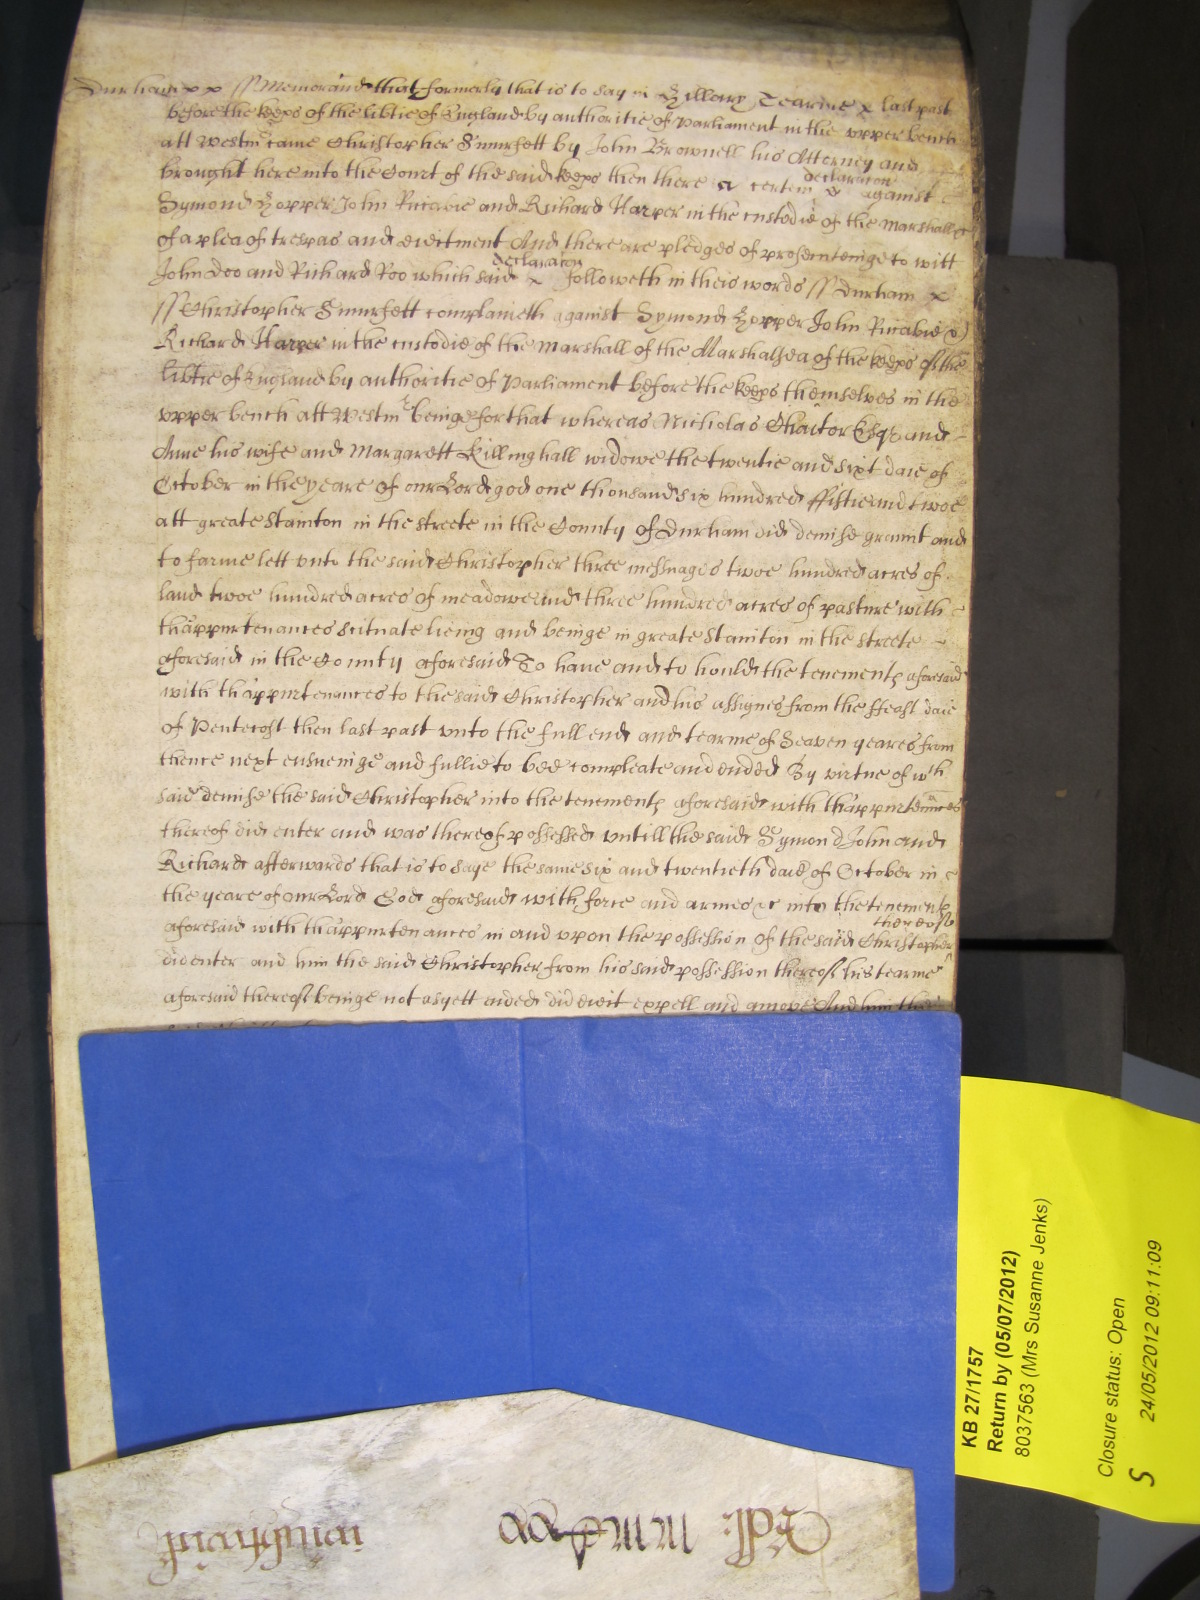 Durham xx ss Memorand that formerly that is to say in Hillary Tearme x last past
before the keeps of the libtie of England by authoritie of Parliament in the vpper bench
att Westm came Christopher Smurfett by John Brownell his Attorney and
brought here into the Court of the said keeps then there a certein x declaration against
Symond Hopper John Pucabie and Richard Harper in the custodie of the Marshall &c
of a plea of trespas and eiectment And there are pledges of prosecuteinge to witt
John Doo and Richard Roo which said x declaration followeth in theis words ss Durham x
ss Christopher Smurfett complaineth against Symond Hopper John Pucabie &
Richard Harper in the custodie of the Marshall of the Marshalsea of the keeps of the
libtie of England by authoritie of Parliament before the keeps themselves in the
vpper bench att Westm beinge for that whereas Nicholas Chaitor Esqr and
Anne his wife and Margarett Killinghall widowe the twentie and sixt daie of
October in the yeare of our Lord god one thousand six hundred ffiftie and twoe
att greate Stainton in the streete in the County of Durham did demise graunt and
to farme lett vnto the said Christopher three messuages twoe hundred acres of
land twoe hundred acres of meadowe and three hundred acres of pasture with
thappurtenances scituate lieing and beinge in greate Stainton in the streete
aforesaid in the County aforesaid To have and to hould the tenements aforesaid
with thappurtenances to the said Christopher and his assignes from the ffeast daie
of Pentecost then last past vnto the full end and tearme of Seaven yeares from
thence next ensueinge and fullie to bee compleate and ended By virtue of wch
said demise the said Christopher into the tenements aforesaid with thappurtenances
thereof did enter and was thereof possessed vntill the said Symond John and
Richard afterwards that is to saye the same six and twentieth daie of October in
the yeare of our Lord God aforesaid with force and armes &c into the tenements
aforesaid with thappurtenances in and vpon the possession of the said Christopher thereof
did enter and him the said Christopher from his said possession thereof his tearme
aforesaid thereof beinge not as yett ended did eiect expell and amove And him the
KB 27/1757
Return by (05/07/2012)
8037563 (Mrs Susanne Jenks)
Closure status: Open
24/05/2012 09:11:09
S